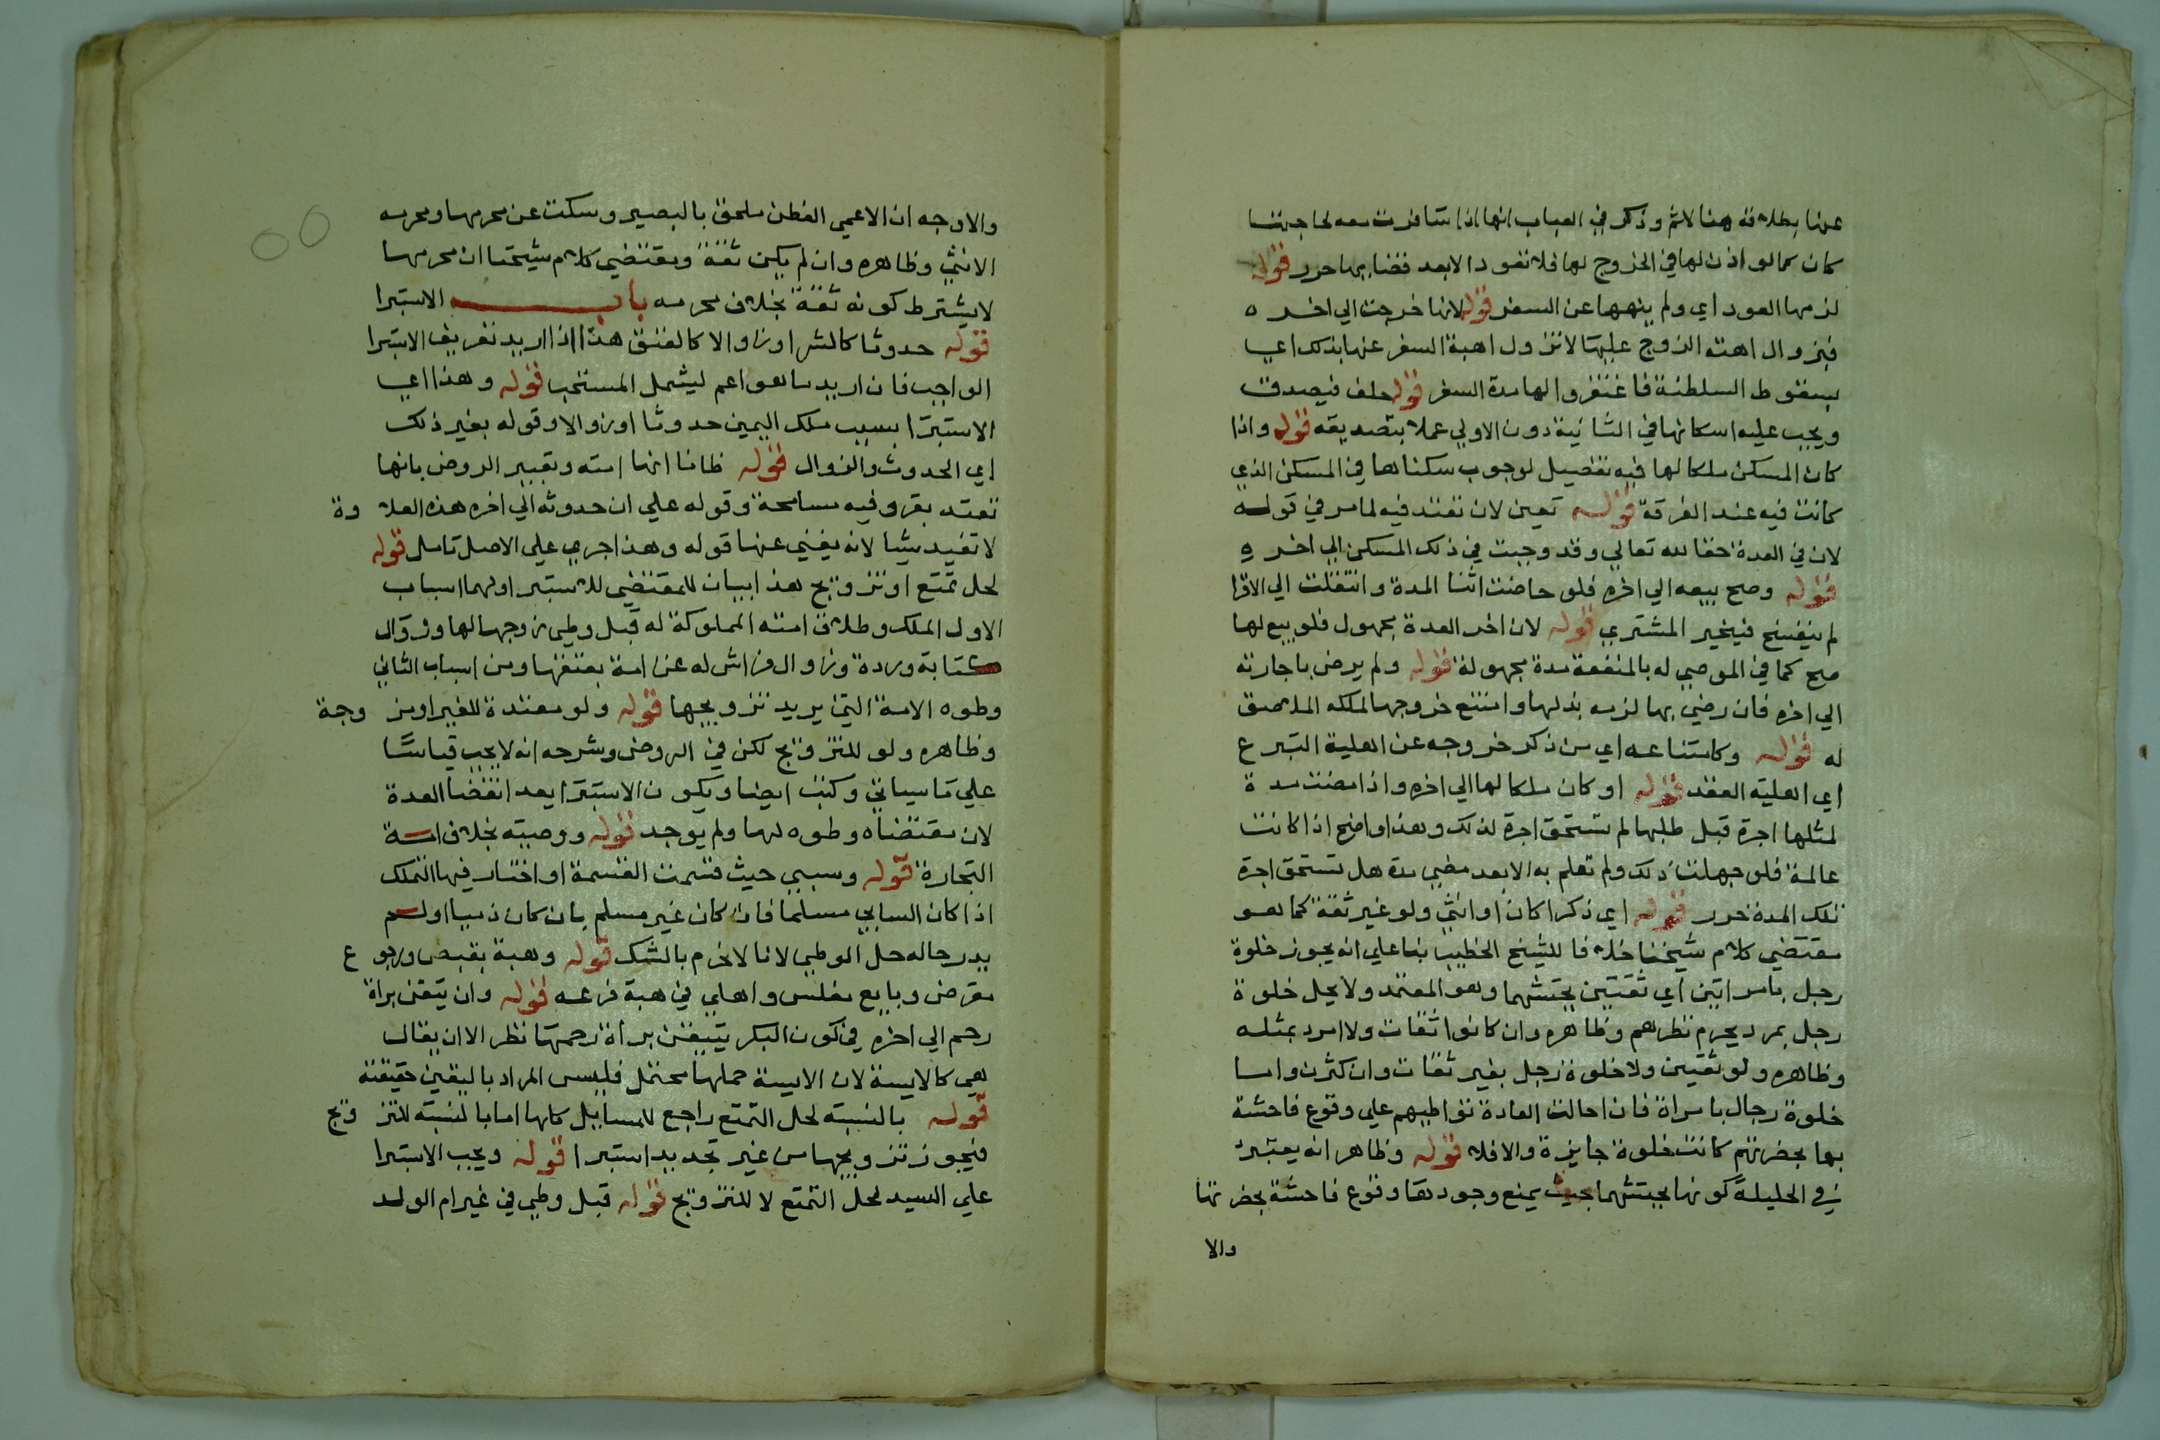 عنها بطلاقه هنا لاثم وذكر في العباب انها اذا سافرت معه لحاجتنا
كان كما لو اذن لها في الخروج لها فلا تعود الا بعد قضايها حرر قوله
لزمها العود اي ولم ينهها عن السفر قوله لانها خرجت الي اخره
فبزوال اهبة الزوج عليها لا تزول اهبة السفر عنها بذلك اعي
بسقوط السلطنة فاغتفروا لها مدة السفر قوله حلف فيصدق
ويجب عليه اسكانها في الثانية دون الاولي عملا بتصديقه قوله واذا
كان المسكن ملكا لها فيه تفصيل لوجوب سكناها في المسكن الذي
كانت فيه عند الفرقة قوله تعين لان تعتد فيه لما مر في قوله
لان في العدة حقا لله تعالي وقد وجبت في ذلك المسكن الي اخره
قوله وصح بيعه الي اخره فلو حاضت اثنا المدة وانتقلت الي الاقرا
لم ينفسخ فيتخير المشتري قوله لان اخر العدة مجهول فلو بيع لها
صح كما في الموصي له بالمنفعة مدة مجهولة قوله ولم يرض باجارته
الي اخره فان رضي بها لزمه بذلها وامتنع خروجها لملكه الملاصق
له قوله وكامتناعه اي من ذكر خروجه عن اهلية التبرع
اي اهلية العقد قوله او كان ملكا لها الي اخره واذا مضت مدة
لمثلها اجرة قبل طلبها لم تستحق اجرة لذلك وهذا واضح اذا كانت
عالمة فلو جهلت ذلك ولم تعلم به الا بعد مضي مدة هل تستحق اجرة
تلك المدة حرر قوله اي ذكرا كان او انثي ولو غير ثقة كما هو
مقتضي كلام شيخنا خلافا للشيخ الخطيب بنا علي انه يجوز خلوة
رجل بامراتين اي ثقتين يحتشمهما وهو المعتمد ولا يحل خلوة
رجل بمرد يحرم نظرهم وظاهره وان كانوا ثقات ولا امرد بمثله
وظاهره ولو ثقتين ولا خلوة رجل بغير ثقات وان كثرن واما
خلوة رجال بامراة فان احالت العادة تواطيهم علي وقوع فاحشة
بها بحضرتهم كانت خلوة جايزة والا فلا قوله وظاهر انه يعتبر
في الحليلة كونها يحتشمها بحيث يمنع وجودها وقوع فاحشة بحضرتها
والا
والاوجه ان الاعمي الفطن ملحق بالبصير وسكت عن محرمها ومحرمه
الانثي وظاهره وان لم يكن ثقة ومقتضي كلام شيخنا ان محرمها
لا يشترط كونه ثقة بخلاف محرمه باب الاستبرا
قوله حدوثا كالشرا وزوالا كالعتق هذا اذا اريد تعريف الاستبرا
الواجب فان اريد ما هو اعم ليشمل المستحب قوله وهذا اعي
الاستبرا بسبب ملك اليمين حدوثا او زوالا وقوله بغير ذلك
اي الحدوث والزوال قوله ظانا انها امته وتعبير الروض بانها
تعتد بقرو فيه مسامحة وقوله علي ان حدوثه الي اخره هذه العلاوة
لا تفيد شيا لانه يغني عنها قوله وهذا جري علي الاصل تامل قوله
لحل تمتع او تزويج هذا بيان للمقتضي للاستبرا ولهما اسباب
الاول الملك وطلاق امته المملوكة له قبل وطي زوجها لها وزوال
كتابة وردة وزوال فراش له عن امة بعتقها ومن اسباب الثاني
وطوه الامة التي يريد تزويجها قوله ولو معتدة لغير او مزوجة
وظاهره ولو للتزويج لكن في الروض وشرحه انه لا يجب قياسا
علي ما سياتي وكتب ايضا ويكون الاستبرا بعد انقضا العدة
لان مقتضاه وطوه لها ولم يوجد قوله ووصيته بخلاف امة
التجارة قوله وسبي حيث قسمت القسمة او اختار فيها التملك
اذا كان السابي مسلما فان كان غير مسلم بان كان ذميا او لم
يدر حاله حل الوطي لانا لا نحرم بالشك قوله وهبة بقبض ورجوع
مقرض وبايع مفلس واصل في هبة فرعه قوله وان تيقن براة
رحم الي اخره في كون البكر يتيقن براة رحمها نظر الا ان يقال
هي كالايسة لان الايسة حملها محتمل فليس المراد باليقين حقيقته
قوله بالنسبة لحل التمتع راجع للمسايل كلها اما بالنسبه للتزويج
فيجوز تزويجها من غير تجديد استبرا قوله ويجب الاستبرا
علي السيد لحل التمتع لا للتزويج قوله قبل وطي في غير ام الولد